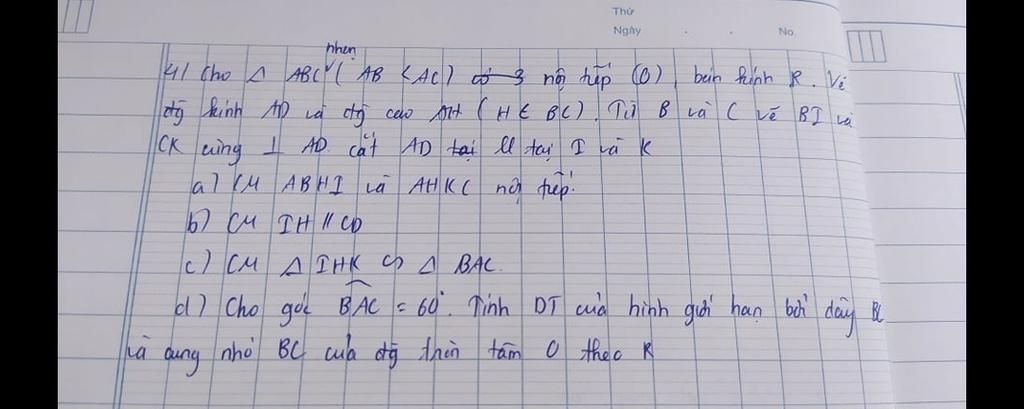 Thứ
Ngày . . No.
nhọn
4/ Cho Δ ABC ( AB < AC) nội tiếp (O), bán kính R. Vẽ
đg kính AD và đg cao AH ( H ∈ BC). Từ B và C vẽ BI và
CK cùng ⊥ AD. cắt AD tại ll tại I và K
a) CM ABHI và AHKC nội tiếp.
b) CM IH // CD
c) CM Δ IHK ∽ Δ BAC.
d) Cho góc BAC = 60°. Tính DT của hình giới hạn bởi dây BC
và cung nhỏ BC của đg tròn tâm O theo R